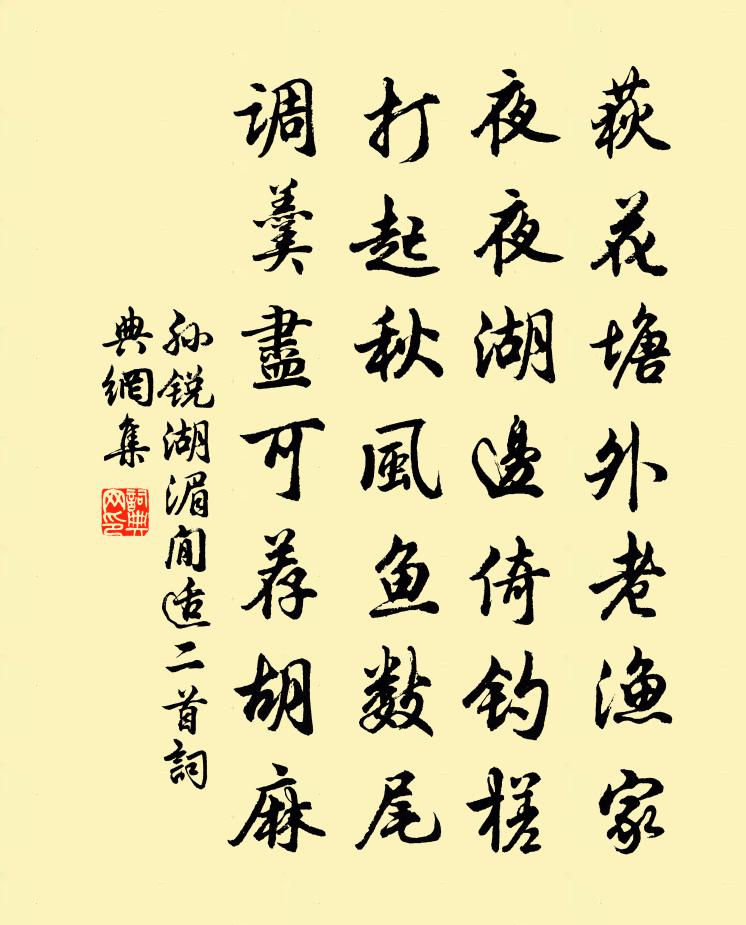 荻花塘外老渔家
夜夜湖邊倚钓槎
打起秋風鱼数尾
调羹盡可荐胡麻
孙锐湖湄闲适二首詞
典網集
詞典网印